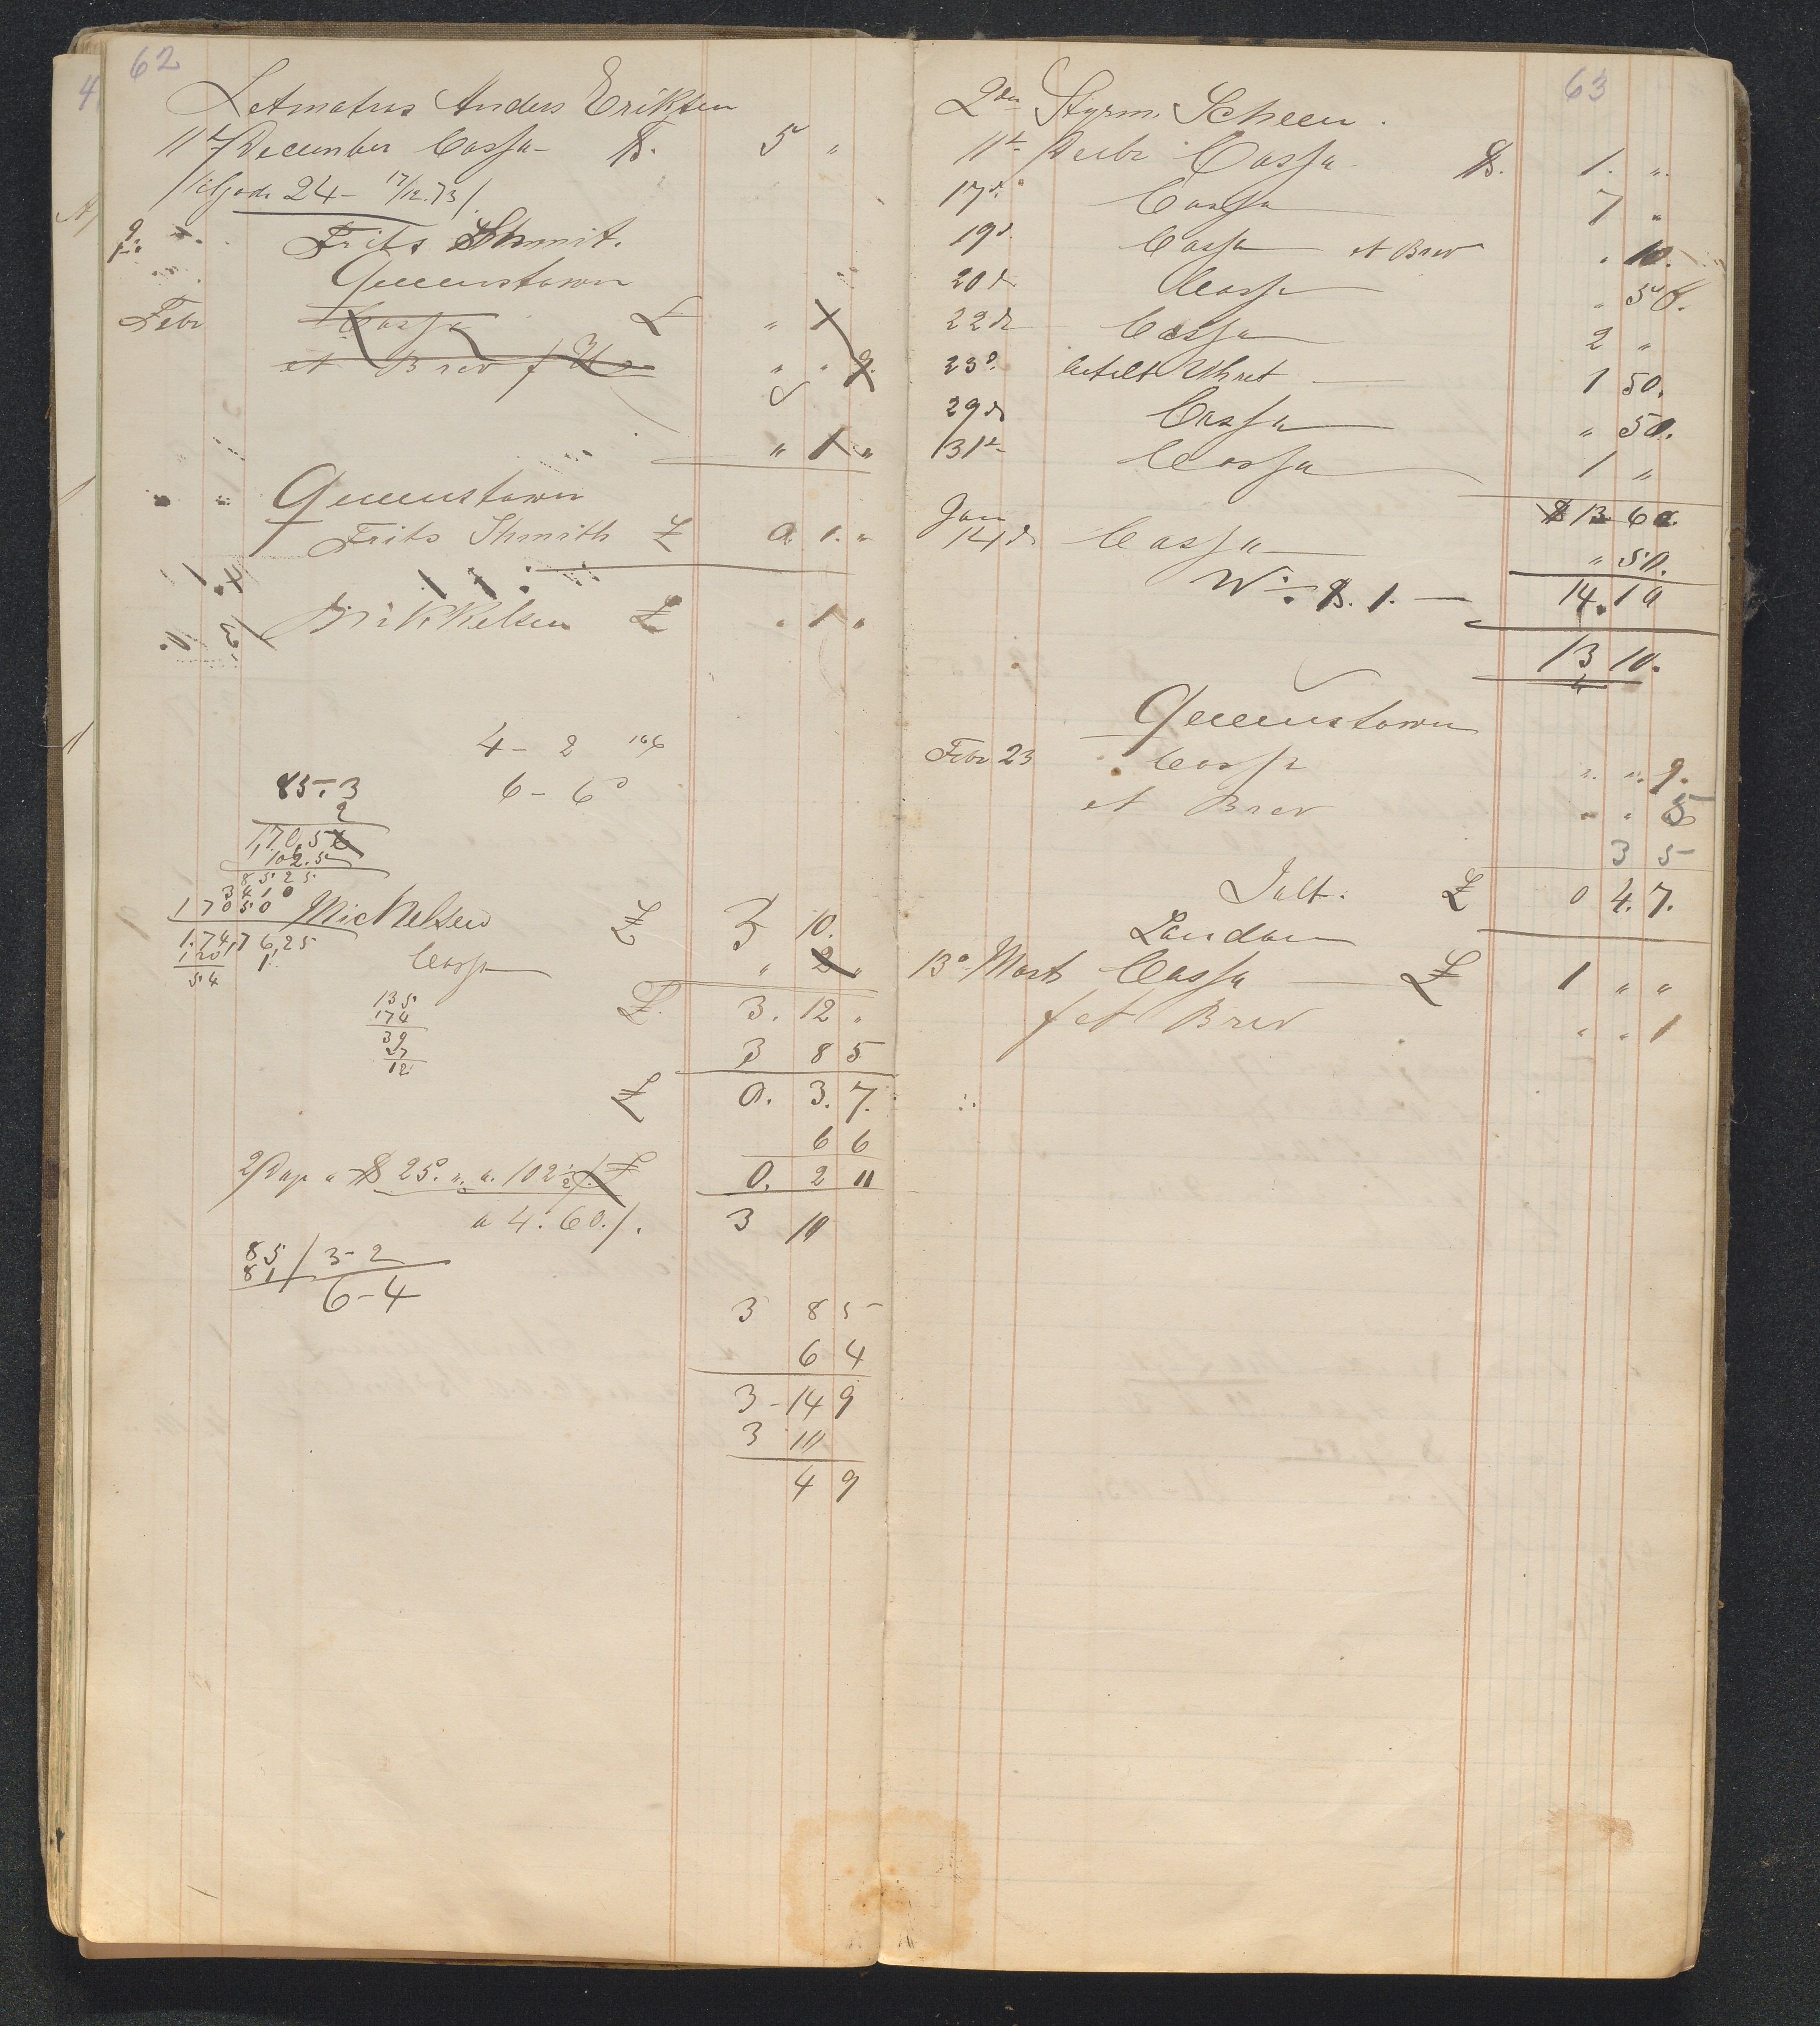 62
Letmatros Anders Eriksen
11te December Cassa $. 5 "
tilgode 24 - 17/12.73/.
Frits Shmit.
Queenstown
Febr Cassa £ " 1
et Brev f " . 9.
" 1 "
Queenstown
Frits Shmith £ 0. 1. "
Mikkelsen £ . 1 .
4 - 2
6 - 6
85. 3
2
170,5
102.5
8525
3410
17050
1.74,76,25
120 1
54
Mickelsen £ 3 10.
Cassa " 2 "
£. 3. 12 "
135
174
39
27
12
3 8 5
£ 0. 3. 7.
6 6
0. 2 11
2 Dage a $ 25. ". a. 102 1/2 /. £
a 4. 60./. 3 10
85 / 3 - 2
81 / 6 - 4
3 8 5
6 4
3 - 14 9
3 10
4 9
63
2den Styrm. Scheen.
11te Decbr Cassa $. 1. "
17d. Cassa 7 "
19d. Cassa et Brev . 10.
20d Cassa " 50.
22d Cassa 2 "
23d. betalt Uhret 1 50.
29d Cassa " 50.
31te Cassa 1 "
$ 13 60.
Jan
14d Cassa " 50.
$. 1. — 14. 10
13 10.
Queenstown
Febr 23 Cassa ". ". 9.
et Brev " . 5
3 5
Ialt: £ 0 4. 7.
London
13d Marts Cassa £ 1 " "
f et Brev " " 1